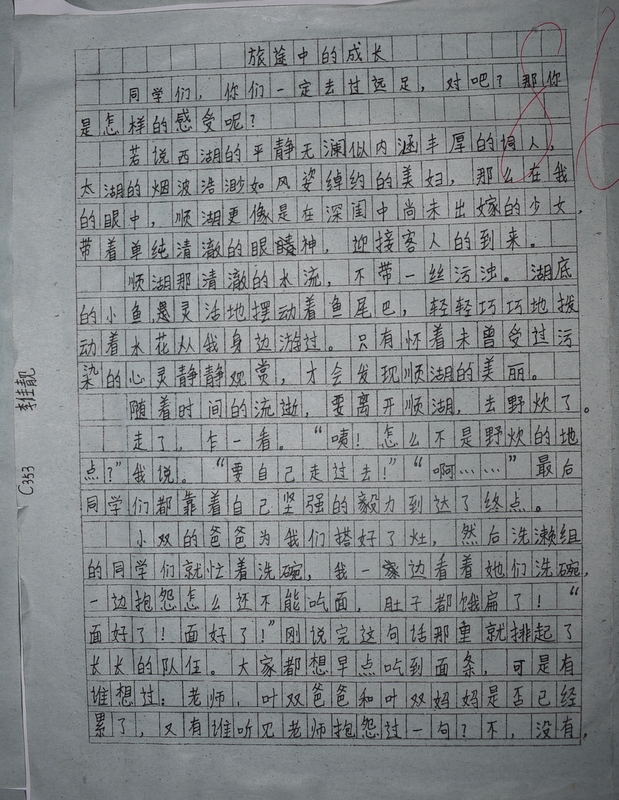 旅途中的成长
同学们，你们一定去过远足，对吧？那你
是怎样的感受呢？
若说西湖的平静无澜似内涵丰厚的人，
太湖的烟波浩渺如风姿绰约的美妇，那么在我
的眼中，顺湖更像是在深闺中尚未出嫁的少女，
带着单纯清澈的眼神，迎接客人的到来。
顺湖那清澈的水流，不带一丝污浊。湖底
的小鱼灵活地摆动着鱼尾巴，轻轻巧巧地拨
动着水花从我身边游过。只有怀着未曾受过污
染的心灵静静观赏，才会发现顺湖的美丽。
随着时间的流逝，要离开顺湖，去野炊了。
走了，乍一看。“咦！怎么不是野炊的地
点？”我说。“要自己走过去！”“啊……”最后
同学们都靠着自己坚强的毅力到达了终点。
小双的爸爸为我们搭好了灶，然后洗漱组
的同学们就忙着洗碗，我一边看着她们洗碗，
一边抱怨怎么还不能吃面，肚子都饿扁了！“
面好了！面好了！”刚说完这句话那里就排起了
长长的队伍。大家都想早点吃到面条，可是有
谁想过：老师，叶双爸爸和叶双妈妈是否已经
累了，又有谁听见老师抱怨过一句？不，没有，
李佳靓
C353
86